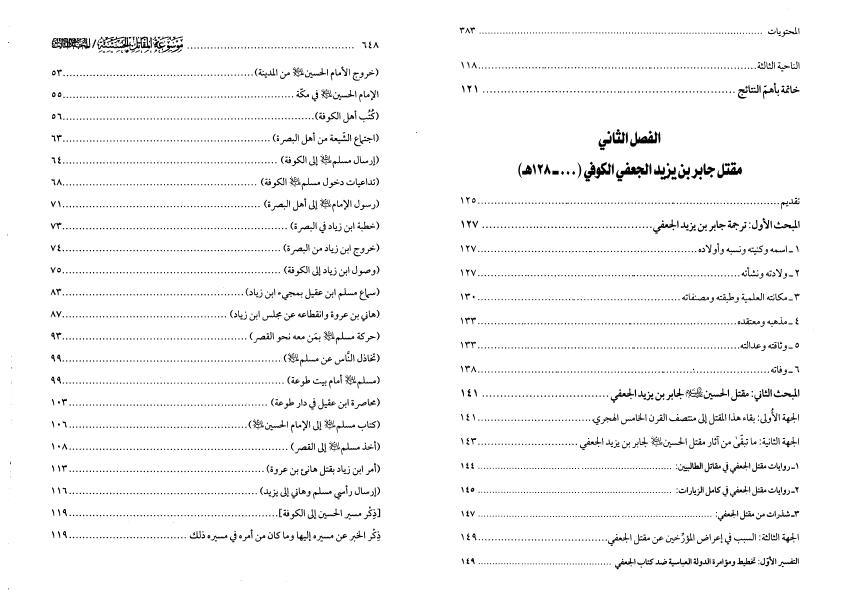 المحتويات ... ٣٨٣
الناحية الثالثة ... ١١٨
خاتمة بأهمّ النتائج ... ١٢١
الفصل الثاني
مقتل جابر بن يزيد الجعفي الكوفي (... ـ ١٢٨هـ)
تقديم ... ١٢٥
المبحث الأول: ترجمة جابر بن يزيد الجعفي ... ١٢٧
١ ـ اسمه وكنيته ونسبه وأولاده ... ١٢٧
٢ ـ ولادته ونشأته ... ١٢٧
٣ ـ مكانته العلمية وطبقته ومصنفاته ... ١٣٠
٤ ـ مذهبه ومعتقده ... ١٣٣
٥ ـ وثاقته وعدالته ... ١٣٣
٦ ـ وفاته ... ١٣٨
المبحث الثاني: مقتل الحسين لجابر بن يزيد الجعفي ... ١٤١
الجهة الأُولى: بقاء هذا المقتل إلى منتصف القرن الخامس الهجري ... ١٤١
الجهة الثانية: ما تبقّىٰ من آثار مقتل الحسين لجابر بن يزيد الجعفي ... ١٤٣
١ـ روايات مقتل الجعفي في مقاتل الطالبيين: ... ١٤٤
٢ـ روايات مقتل الجعفي في كامل الزيارات: ... ١٤٥
٣ـ شذرات من مقتل الجعفي: ... ١٤٧
الجهة الثالثة: السبب في إعراض المؤرّخين عن مقتل الجعفي ... ١٤٩
التفسير الأوّل: تخطيط ومؤامرة الدولة العباسية ضد كتاب الجعفي ... ١٤٩
٦٤٨ ... موسوعة المقاتل الحسينية /
(خروج الأمام الحسين من المدينة) ... ٥٣
الإمام الحسين في مكّة ... ٥٥
(كُتُب أهل الكوفة) ... ٥٦
(اجتماع الشّيعة من أهل البصرة) ... ٦٣
(إرسال مسلم إلى الكوفة) ... ٦٤
(تداعيات دخول مسلم الكوفة) ... ٦٨
(رسول الإمام إلى أهل البصرة) ... ٧١
(خطبة ابن زياد في البصرة) ... ٧٣
(خروج ابن زياد من البصرة) ... ٧٤
(وصول ابن زياد إلى الكوفة) ... ٧٥
(سماع مسلم ابن عقيل بمجيء ابن زياد) ... ٨٣
(هاني بن عروة وانقطاعه عن مجلس ابن زياد) ... ٨٧
(حركة مسلم بمَن معه نحو القصر) ... ٩٣
(تخاذل النَّاس عن مسلم) ... ٩٩
(مسلم أمام بيت طوعة) ... ٩٩
(محاصرة ابن عقيل في دار طوعة) ... ١٠٣
(كتاب مسلم إلى الإمام الحسين) ... ١٠٦
(أخذ مسلم إلى القصر) ... ١٠٨
(أمر ابن زياد بقتل هانئ بن عروة) ... ١١٣
(إرسال رأسي مسلم وهاني إلى يزيد) ... ١١٦
[ذِكْر مسير الحسين إلى الكوفة] ... ١١٩
ذِكْر الخبر عن مسيره إليها وما كان من أمره في مسيره ذلك ... ١١٩